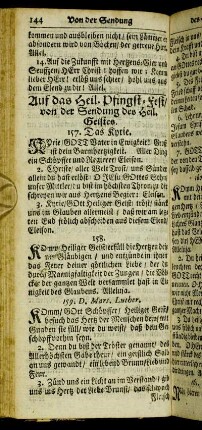 144 Von der Sendung
kommen und ausbleiben nicht/ sein
absondern wird von Böcken/ der getreue Hirt.
Allel.
14. Auf die Zukunfft mit Hertzens-Gier und
Seufftzen/ HErr Christ/ hoffen wir: Kom
lieber HErr! erlös uns
dem Elend zu dir! Allel.
Auf das Heil. Pfingst-Fest/
von der Sendung des Heil.
Geistes.
157. Das Kyrie.
KYrie/ GOTT Vater in Ewigkeit! Groß
ist dein Barmhertzigkeit. Aller Ding
ein Schöpffer und Regierer. Eleison.
2. Christe/ aller Welt Trost/ uns Sünder
allein du hast erlöst. O JEsu/ GOttes Sohn/
unser Mittler/ bist in höchsten Throne: zu dir
schreyen wir aus Hertzens Begier: Eleison.
3. Kyrie/ GOtt Heiliger Geist: tröst/ stärck
uns im Glauben allermeist/ daß wir am letz-
ten End frölich abscheiden aus diesem Elend/
Eleison.
158.
KOmm/ Heiliger Geist! erfüll die Hertzen dei-
ner Gläubigen/ und entzünde in ihnen
das Feuer deiner göttlichen Liebe/ der du
durch Mannigfaltigkeit der Zungen/ die Völ-
cker der gantzen Welt versammlet hast in Ei-
nigkeit des Glaubens. Alleluja.
159. D. Mart. Luther.
KOmm/ GOtt Schöpffer/ Heiliger Geist/
besuch das Hertz der Menschen dein/ mit
Gnaden sie füll/ wie du weist/ daß dein Ge-
schöpff vorhin seyn.
2. Denn du bist der Tröster genannt/ des
Allerhöchsten Gabe theur/ ein geistlich Salb
an uns gewandt/ ein lebend Brunn/ Lieb und
Feur.
3. Zünd uns ein Licht an im Verstand/ gib
uns ins Hertz der Liebe Brunst/ das schwach
Fleisch